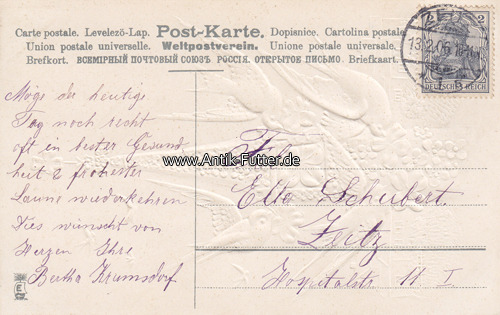 Carte postale. Levelező-Lap. Post-Karte. Dopisnice. Cartolina postale.
Union postale universelle. Weltpostverein. Unione postale universale.
Brefkort. ВСЕМІРНЫЙ ПОЧТОВЫЙ СОЮЗЪ. РОССІЯ. ОТКРЫТОЕ ПИСЬМО. Briefkaart.
13.2.06
2 2
DEUTSCHES REICH
Möge der heutige
Tag noch recht
oft in bester Gesund
heit & frohester
Laune wiederkehren
Dies wünscht von
Herzen Ihre
Bertha Krumsdorf
www.Antik-Futter.de
Frl.
Elte Schubert.
Zeitz
Hospitalstr. 11 I.